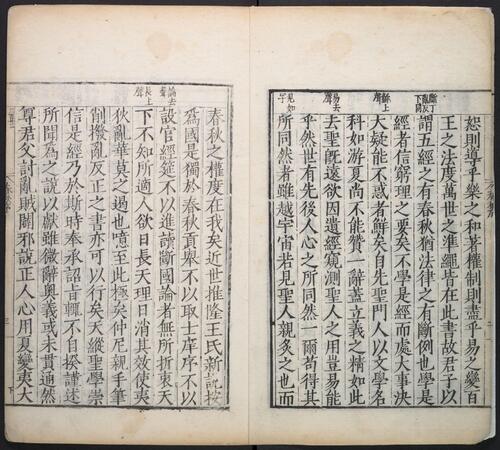 斷丁亂反下同
鮮上聲
易去聲
見如字
恕則導乎樂之和著權制則盡乎易之變百
王之法度萬世之準繩皆在此書故君子以
謂五經之有春秋猶法律之有斷例也學是
經者信窮理之要矣不學是經而處大事決
大疑能不惑者鮮矣自先聖門人以文學名
科如游夏尚不能贊一辭蓋立義之精如此
去聖既遠欲因遺經窺測聖人之用豈易能
乎然世有先後人心之所同然一爾苟得其
所同然者雖越宇宙若見聖人親炙之也而
論去聲
長上聲
春秋之權度在我矣近世推隆王氏新說按
為國是獨於春秋貢舉不以取士庠序不以
設官經筵不以進讀斷國論者無所折衷天
下不知所適人欲日長天理日消其效使夷
狄亂華莫之遏也噫至此極矣仲尼親手筆
削撥亂反正之書亦可以行矣天縱聖學崇
信是經乃於斯時奉承詔旨輒不自揆謹述
所聞為之說以獻雖微辭奧義或未貫通然
尊君父討亂賊闢邪說正人心用夏變夷大